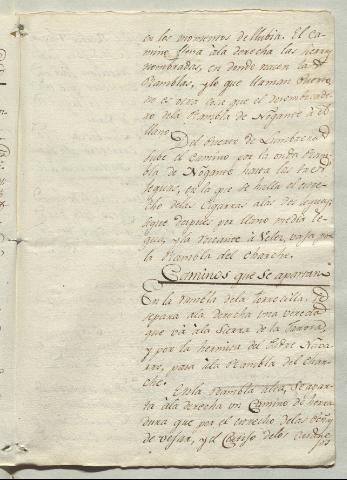 en los momentos de llubia. El Ca-
mino lleva â la derecha las
nombradas, en donde nacen la
Ramblas, y lo que llaman Puerto
no es otra cosa que el desembocade-
ro dela Rambla de Nogante â el
llano.
Del Puerto de Lumbreras
sube el camino por la onda Ram-
bla de Nogante hasta las tres
leguas, en la que se halla el estre-
cho de Cigarras alas dos leguas,
sigue despues por llano media le-
gua, y la restante â Velez, vaja por
la Rambla del Charche.
Caminos que se apartan
En la rambla dela Torrecilla, Se
separa âla derecha una vereda
que vâ âla Sierra de la
y por la hermita del Padre Nava-
rro, pasa âla Rambla del Char-
che.
En la Rambla alta, Se apar-
ta âla derecha un Camino de herra-
dura que por el estrecho delas Peñas
de Vejar, y el Cortijo delos